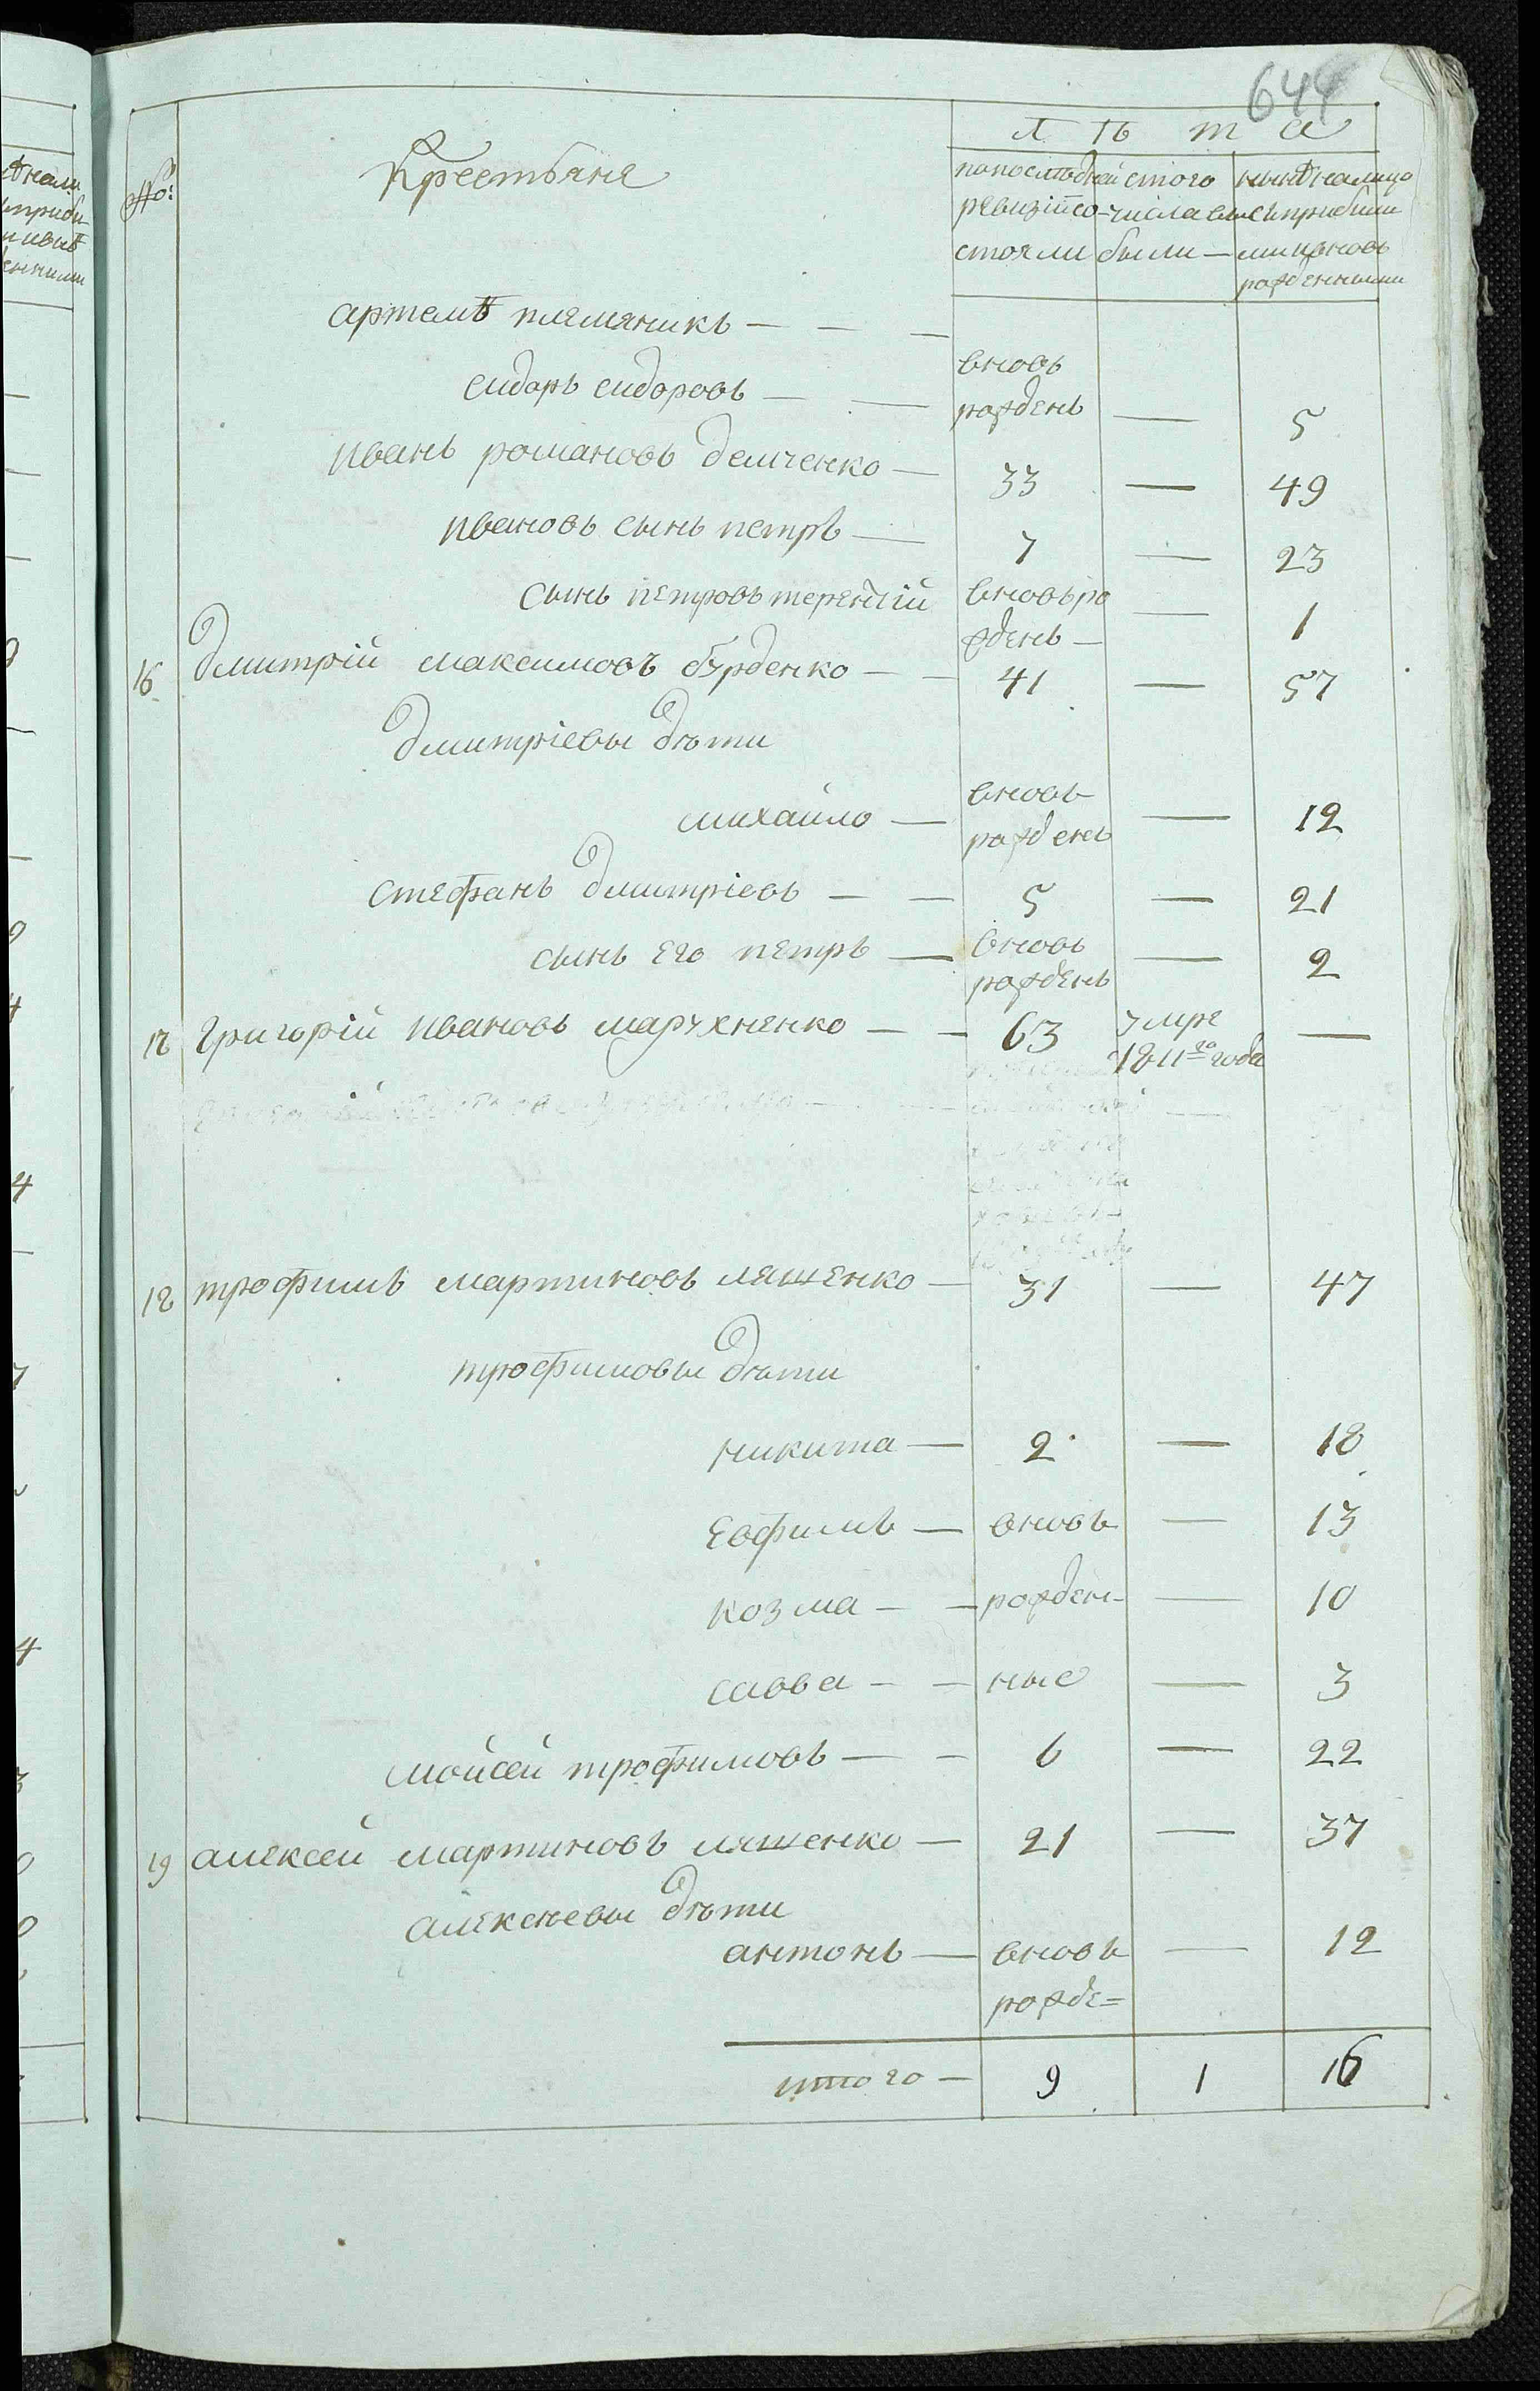 644
№:
Крестьяне
л ѣ т а
по последней ревизіи состояли
с того числа выбыли —
нынѣ на лицо с прибылыми и вновь рожденными
артемѣ племяникъ — — —
сидоръ сидоровъ — — вновь рожденъ — 5
иванъ романовъ демченко — 33 — 49
ивановъ сынъ петръ — 7 — 23
сынъ петровъ терентій вновь рожденъ — — 1
16 дмитрій максимовъ бурденко — — 41 — 57
дмитріевы дѣти
михайло — вновь рожденъ — 12
стефанъ дмитріевъ — — 5 — 21
сынъ его петръ — вновь рожденъ — 2
17 григорій ивановъ — — 63 умре 1811го года —
18 трофимъ мартиновъ ляшенко — 31 — 47
трофимовы дѣти
никита — 2 — 18
евфимъ — вновь — 13
козма — — рожден- — 10
савва — — ные — 3
мойсей трофимовъ — — 6 — 22
19 алексей мартиновъ ляшенко — 21 — 37
алексѣевы дѣти
антонъ — вновь рожде= — 12
итого — 9 1 16